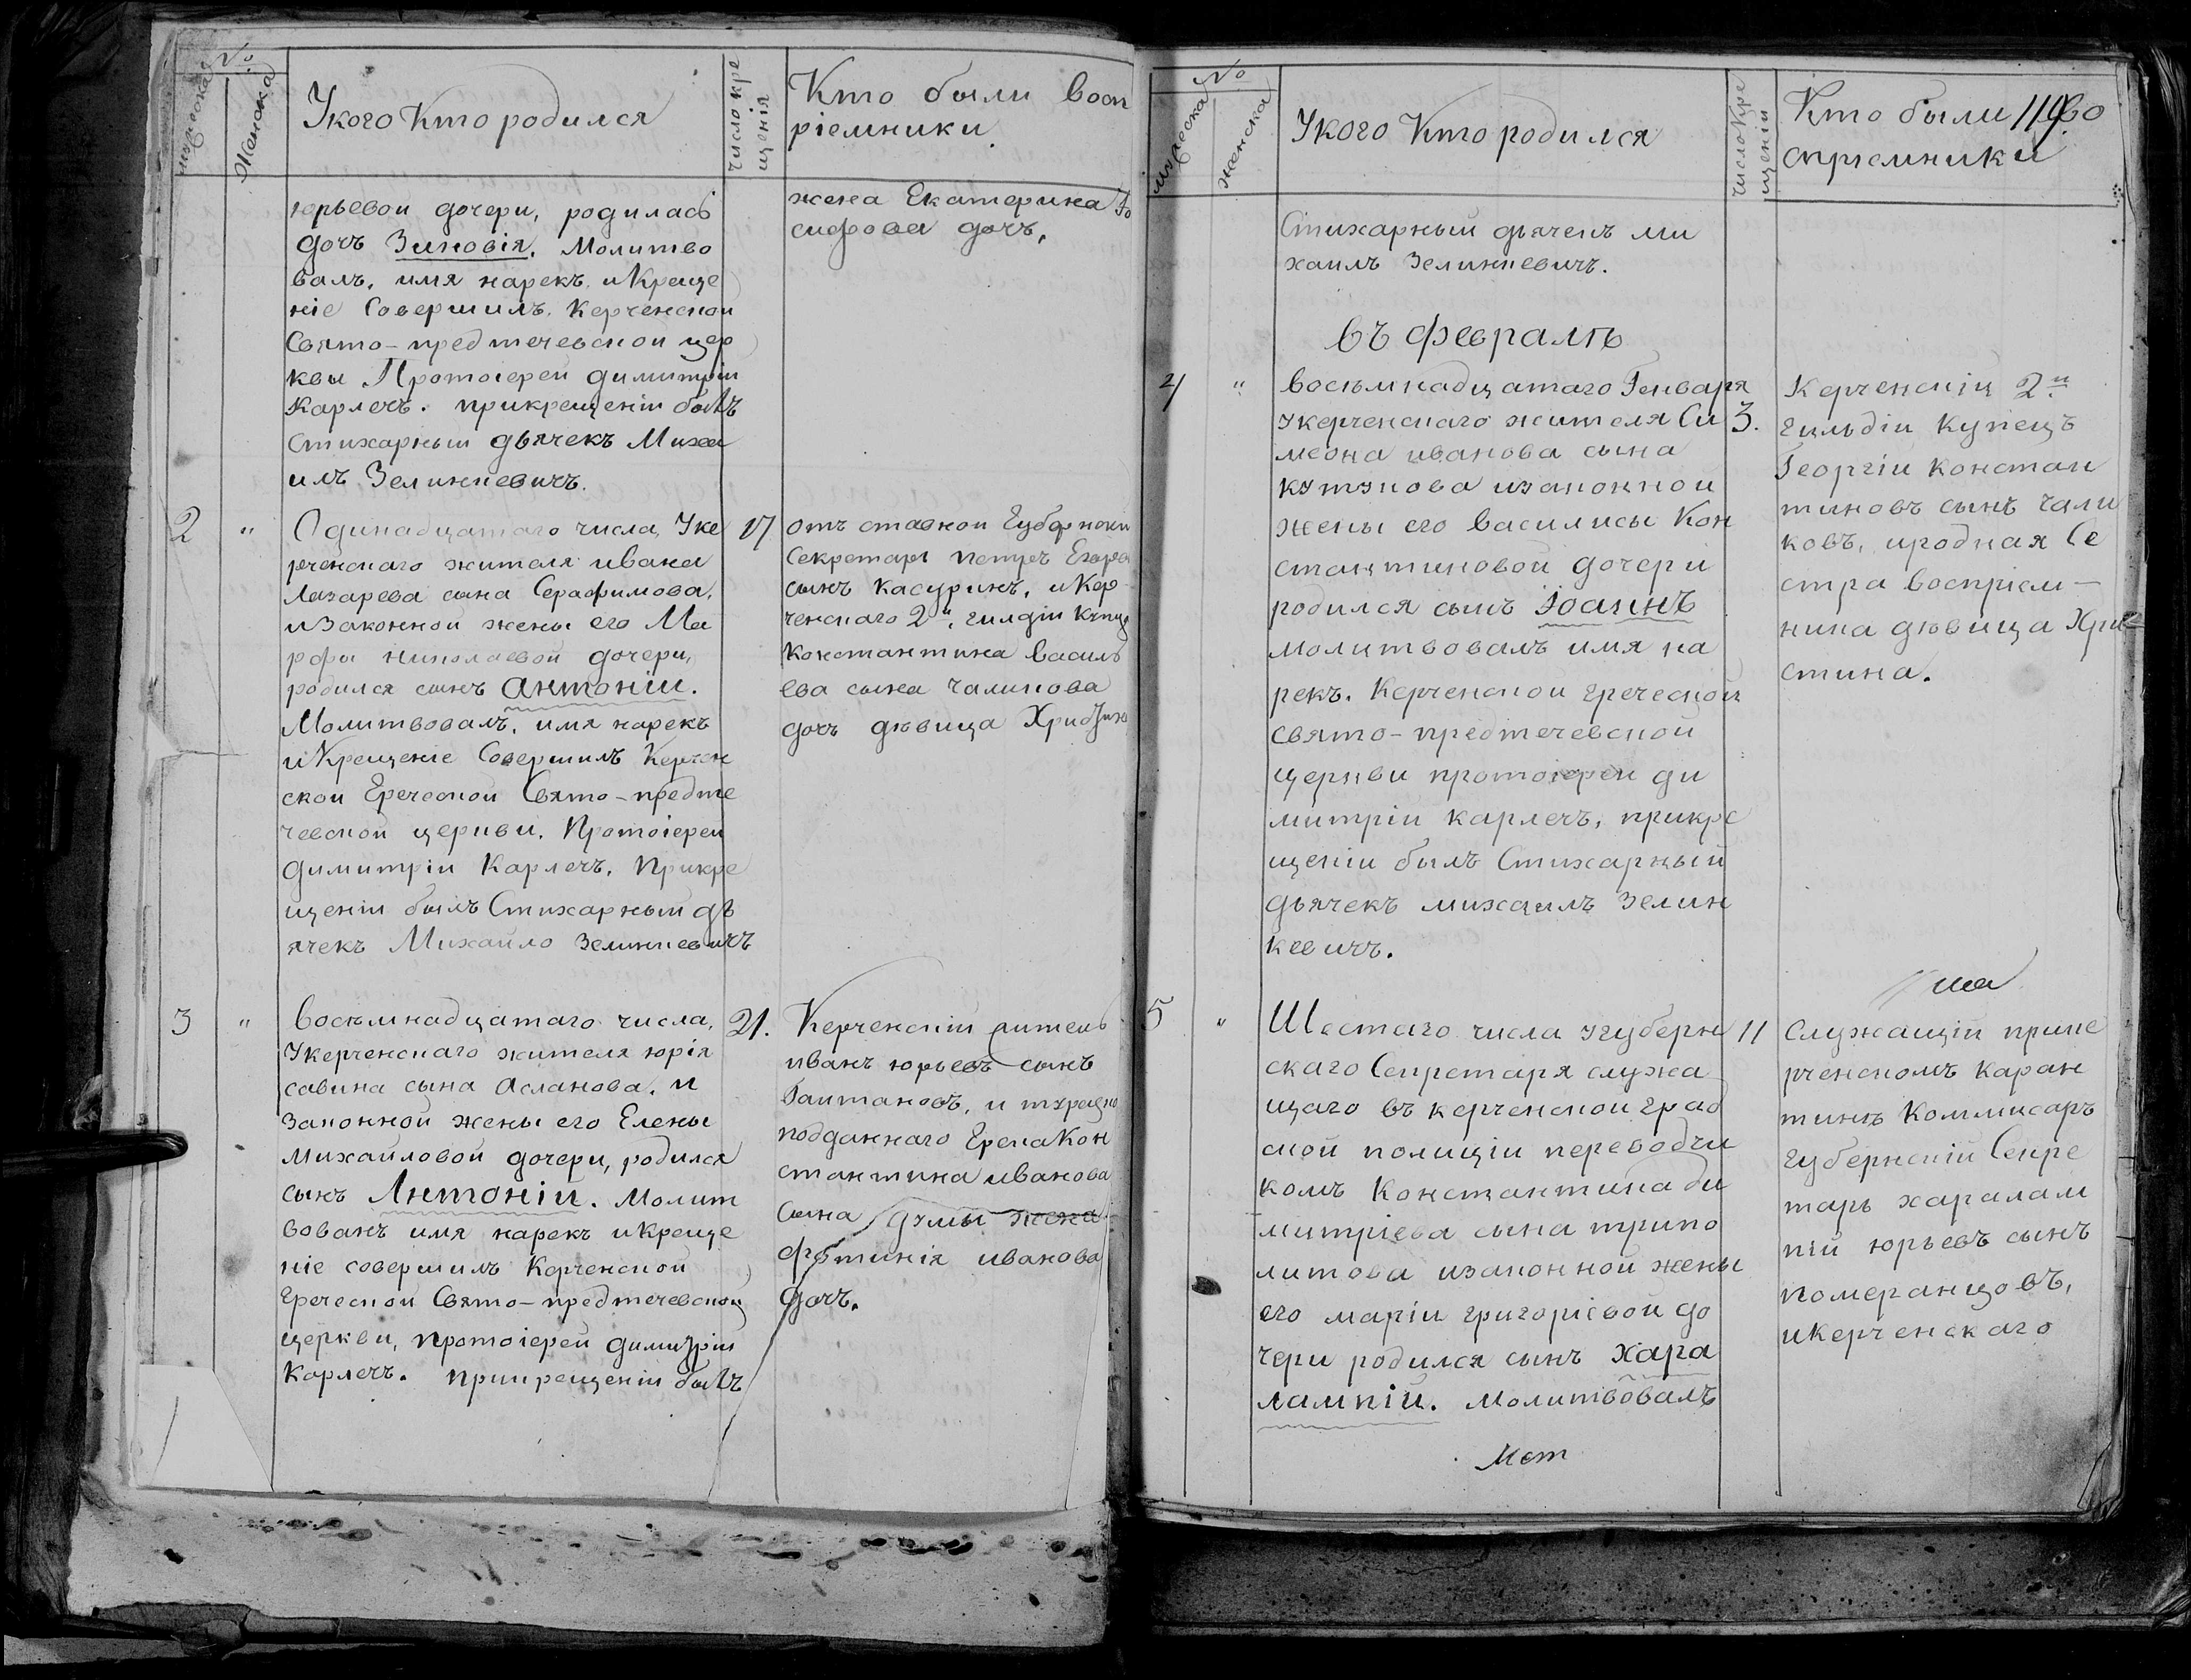 №
мужеска
Женска
Укого Кто родился
число кре
щенія
Кто были восп
ріемники
юрьевои дочери, родилась
дочь Зиновія. Молитво
валъ, имя нарекъ, и Креще
ніе Совершилъ, Керченскои
Свято-предтечевскои цер
квы Протоіереи димитріи
Карлечъ. прикрещеніи былъ
стихарныи дьячекъ Миха
илъ Зелинкевичъ.
жена Екатерина Іо
сифова дочь,
2 " Одинадцатаго числа, Уке
рченскаго жителя ивана
Лазарева сына Серафимова,
и Законнои жены его Ма
рфы николаевои дочери,
родился сынъ антоніи.
Молитвовалъ, имя нарекъ
и Крещеніе Совершилъ Керчен
скои Греческои Свято-предте
чевскои церкви, Протоіереи
димитріи Карлечъ, Прикре
щеніи былъ Стихарныи дь
ячекъ Михайло Зелинкевичъ
17
отъ ставнои Губернски
Секретарь петръ Егоров
сынъ Касуринъ, и Кер
ченскаго 2й гилдіи Купца
Константина василь
ева сына Чаликова
дочь дѣвица Христин
3 " восьмнадцатаго числа,
Укерченскаго жителя юрія
савина сына Асланова, и
Законной жены его Елены
Михайловой дочери, родился
сынъ Антоній. Молит
вованъ имя нарекъ и креще
ніе совершилъ Керченской
Греческои Свято-предтечевскои
церкви, протоіереи димитріи
Карлечъ. прикрещеніи былъ
21.
Керченскій житель
иванъ юрьевъ сынъ
Гаитановъ, и турецко
подданнаго Грека Кон
стантина иванова
сына думы жена
фотинія иванова
дочь.
№
мужеска
женска
Укого Кто родился
число Кре
щеніи
Кто были во
спріемники
Стихарный дьячекъ ми
хаилъ Зелинкевичъ.
въ февралѣ
4 " восьмнадцатаго Генваря
Укерченскаго жителя Си
меона иванова сына
кутузова изаконной
жены его василисы Кон
стантиновой дочери
родился сынъ Іоаннъ
молитвовалъ имя на
рекъ. Керченской греческой
свято-предтечевской
церкви протоіереи ди
митріи карлечъ, прикре
щеніи былъ Стихарный
дьячекъ михаилъ Зелин
кевичъ.
3.
Керченскіи 2й
гильдіи Купецъ
Георгіи констан
тиновъ сынъ чали
ковъ, иродная Се
стра воспріем-
ника дѣвица Хри
стина.
5 " Шестаго числа угуберн
скаго Секретаря служа
щаго въ керченской град
ской полиціи переводчи
комъ Константина ди
митріева сына трипо
литова изаконной жены
его маріи григоріевой до
чери родился сынъ хара
лампій. молитвовалъ
11
Служащій прике
рченскомъ Каран
тинѣ Коммисаръ
губернскій Секре
тарь харалам
пій юрьевъ сынъ
померанцовъ,
иКерченскаго